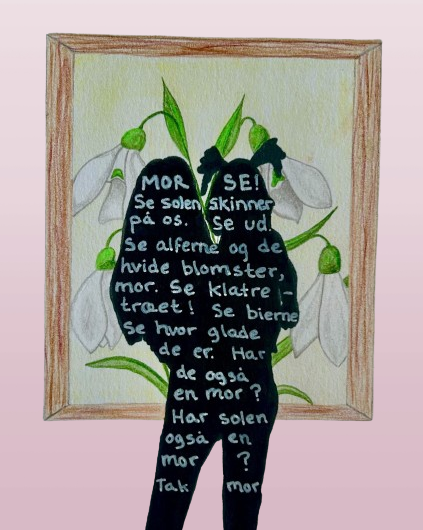 MOR SE!
Se solen skinner
på os. Se ud.
Se alferne og de
hvide blomster,
mor. Se klatre-
træet! Se bierne
Se hvor glade
de er. Har
de også
en mor?
Har solen
også en
mor ?
Tak mor